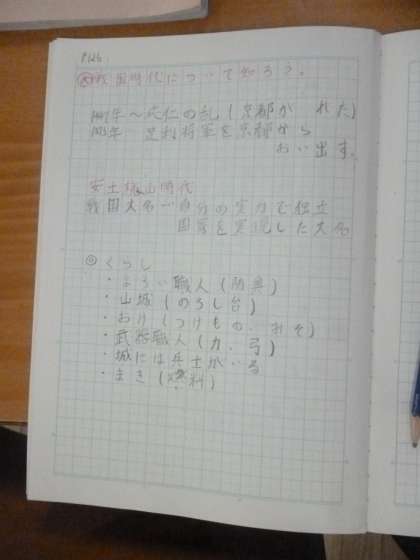 P.126
戦国時代について知ろう。
1467年〜応仁の乱(京都が れた)
1573年 足利将軍を京都から
おい出す。
安土桃山時代
戦国大名…自分の実力で独立
国家を実現した大名
◎くらし
・よろい職人(防具)
・山城(のろし台)
・おけ(つけもの、みそ)
・武器職人(刀、弓)
・城には兵士がいる
・まき(燃料)